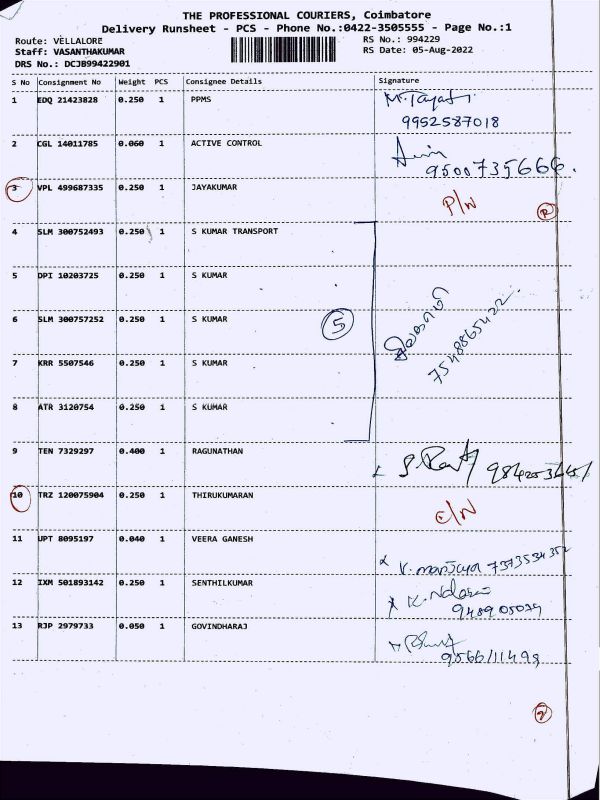 THE PROFESSIONAL COURIERS, Coimbatore
Delivery Runsheet - PCS - Phone No.:0422-3505555 - Page No.:1
Route: VELLALORE RS No.: 994229
Staff: VASANTHAKUMAR RS Date: 05-Aug-2022
DRS No.: DCJB99422901
S No Consignment No Weight PCS Consignee Details Signature
1 EDQ 21423828 0.250 1 PPMS
9952587018
2 CGL 14011785 0.060 1 ACTIVE CONTROL
9500735666.
3 VPL 499687335 0.250 1 JAYAKUMAR P/N
4 SLM 300752493 0.250 1 S KUMAR TRANSPORT
5 DPI 10203725 0.250 1 S KUMAR
6 SLM 300757252 0.250 1 S KUMAR 5
7548865422
7 KRR 5507546 0.250 1 S KUMAR
8 ATR 3120754 0.250 1 S KUMAR
9 TEN 7329297 0.400 1 RAGUNATHAN
10 TRZ 120075904 0.250 1 THIRUKUMARAN
11 UPT 8095197 0.040 1 VEERA GANESH
7373534352
12 IXM 501893142 0.250 1 SENTHILKUMAR
13 RJP 2979733 0.050 1 GOVINDHARAJ